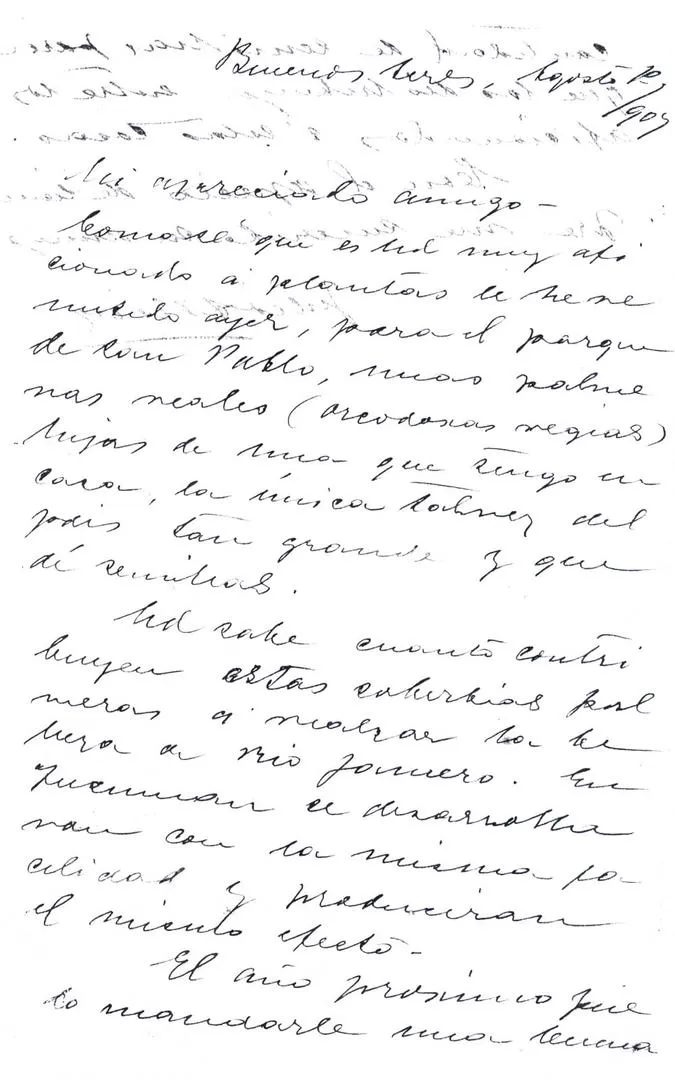 Buenos Aires, Agosto
/907
Mi apreciado amigo -
Como sé que es Ud muy afi
cionado á plantas le he re
mitido ayer, para el parque
de San Pablo, unas palme
ras reales (oreodoxas regias)
hijas de una que tengo en
casa, la única talvez del
pais tan grande y que
dé semillas.
Ud sabe cuanto contri
buyen estas soberbias pal
meras á realzar la be
lleza de Rio Janeiro. En
Tucuman se desarrolla
ran con la misma fa-
cilidad y produciran
el mismo efecto -
El año proximo pue
do mandarle una buena